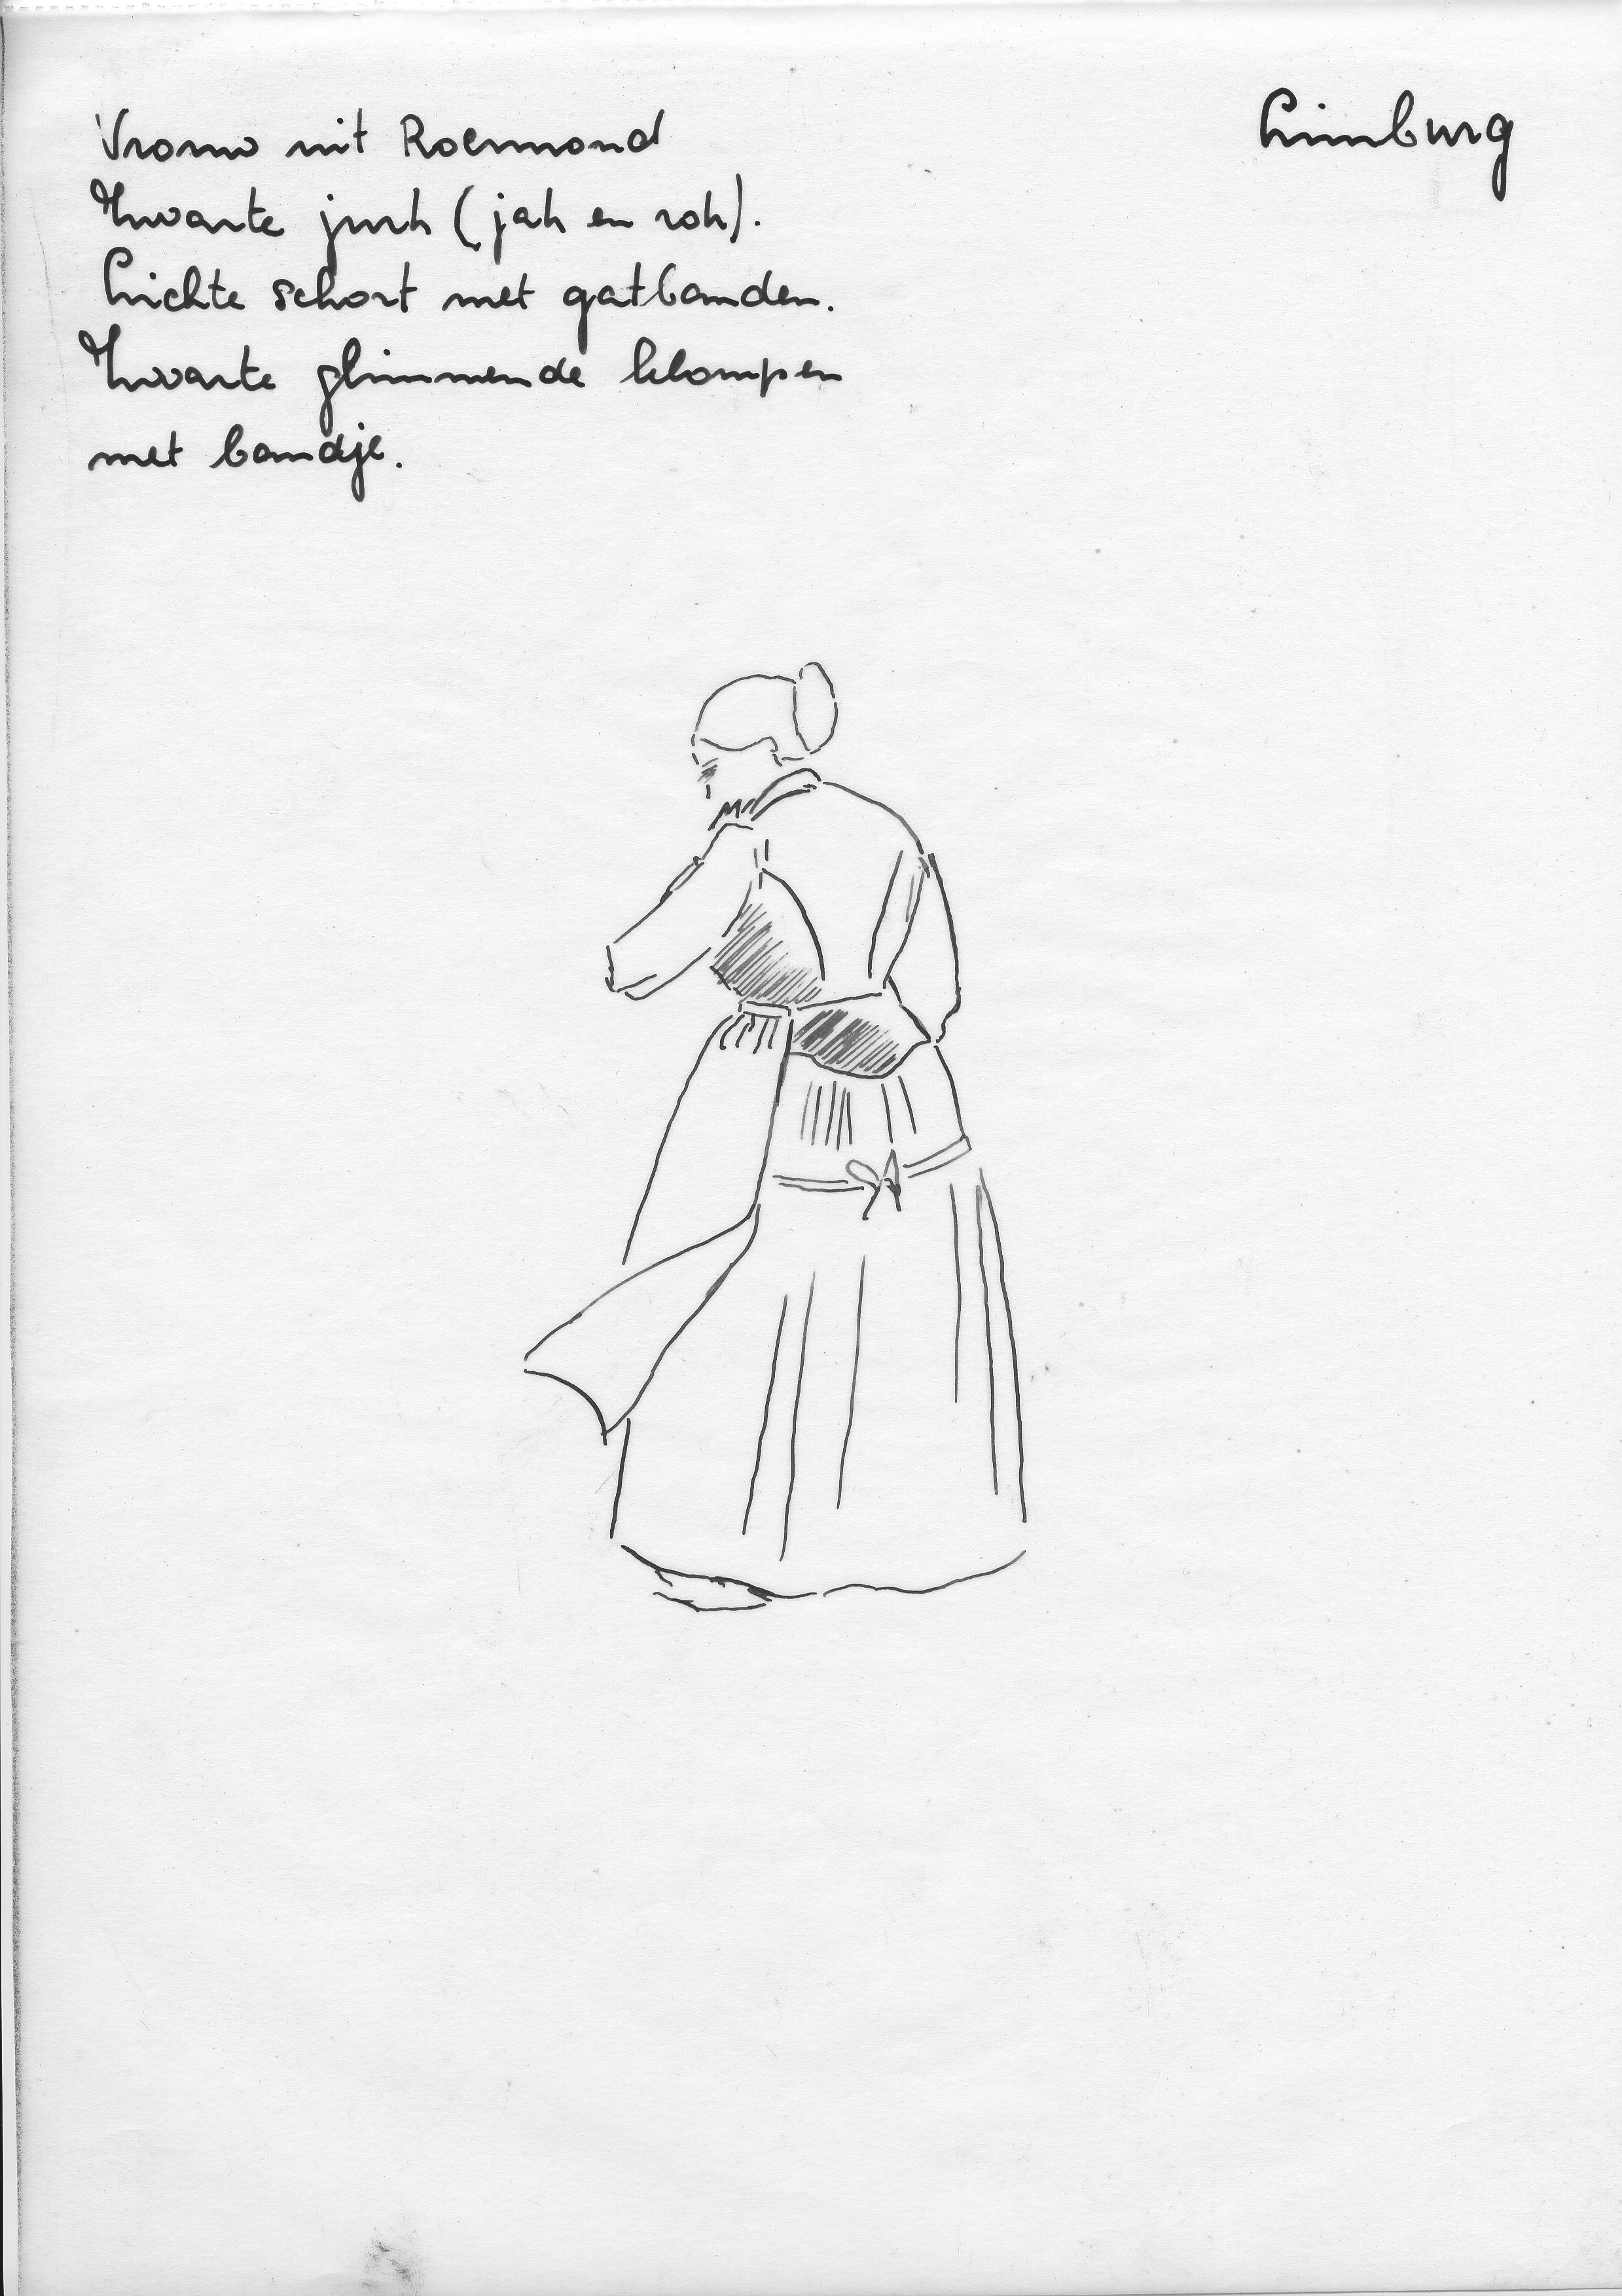 Vrouw uit Roermond
Limburg
Zwarte jurk (jak en rok).
Lichte schort met gatbanden.
Zwarte glimmende klompen
met bandje.